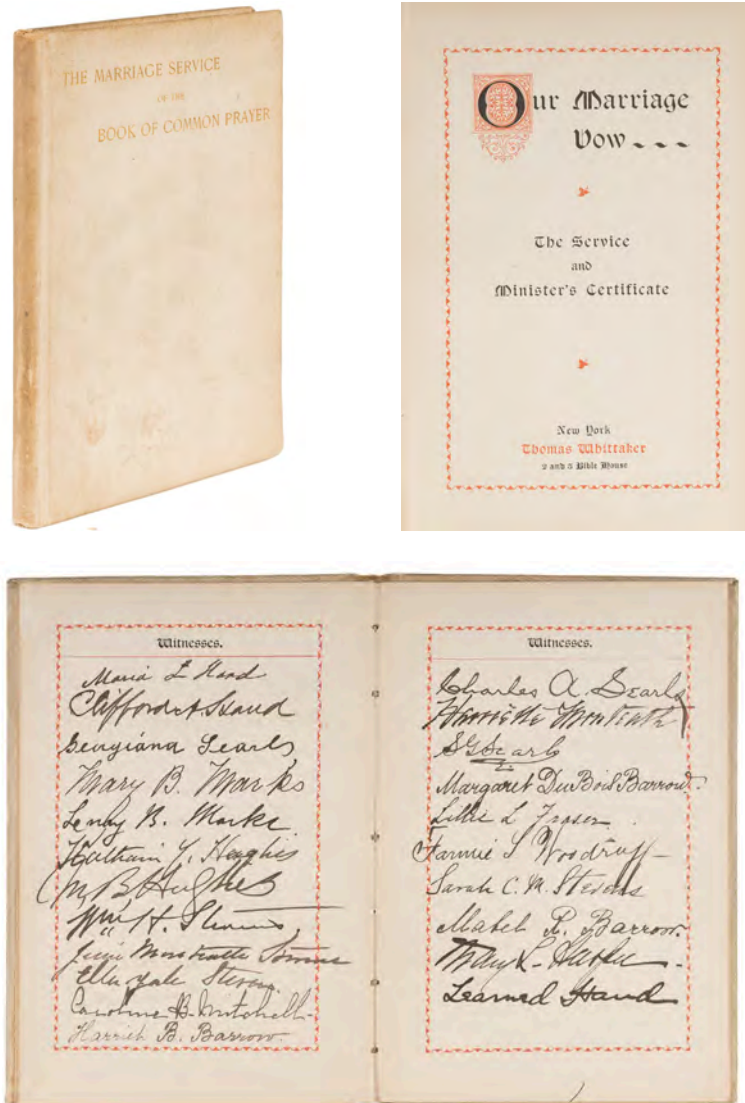 THE MARRIAGE SERVICE
OF THE
BOOK OF COMMON PRAYER
Our Marriage
Vow
The Service
and
Minister's Certificate
New York
Thomas Whittaker
2 and 3 Bible House
Witnesses.
Maria L Hand
Clifford A. Hand
Georgiana Searls
Mary B. Marks
B. Marks
Hughes
M B Hughes
Wm H. Stevens
Ellen Yale Stevens
Caroline B. Mitchell
Harriet B. Barrow.
Witnesses.
Charles A. Searls
Harriette Monteath
Searls
Margaret DuBois Barrow.
Lillie L Fraser.
Fannie S Woodruff
Sarah C. M. Stevens
Mabel R. Barrow.
Mary L.
Learned Hand